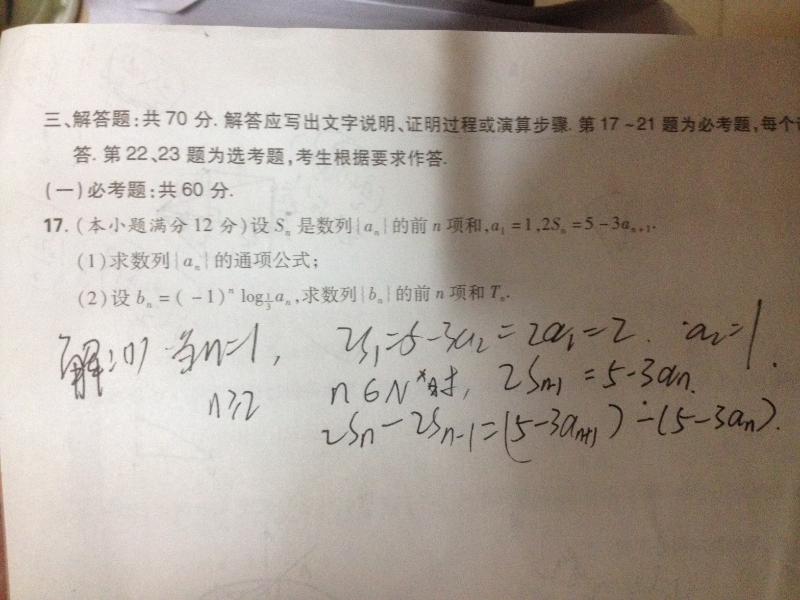 三、解答题:共 70 分. 解答应写出文字说明、证明过程或演算步骤. 第 17 ~ 21 题为必考题,每个
答. 第 22、23 题为选考题,考生根据要求作答.
(一)必考题:共 60 分.
17. (本小题满分 12 分)设 Sₙ 是数列{aₙ}的前 n 项和,a₁ = 1,2Sₙ = 5 - 3aₙ₊₁.
(1)求数列{aₙ}的通项公式;
(2)设 bₙ = ( -1)ⁿ log_{1/3} aₙ,求数列{bₙ}的前 n 项和 Tₙ.
解:(1) 当n=1, 2S₁=5-3a₂=2a₁=2. ∴a₂=1.
n≥2 n∈N*时, 2Sₙ₋₁=5-3aₙ.
2Sₙ-2Sₙ₋₁=(5-3aₙ₊₁)-(5-3aₙ).